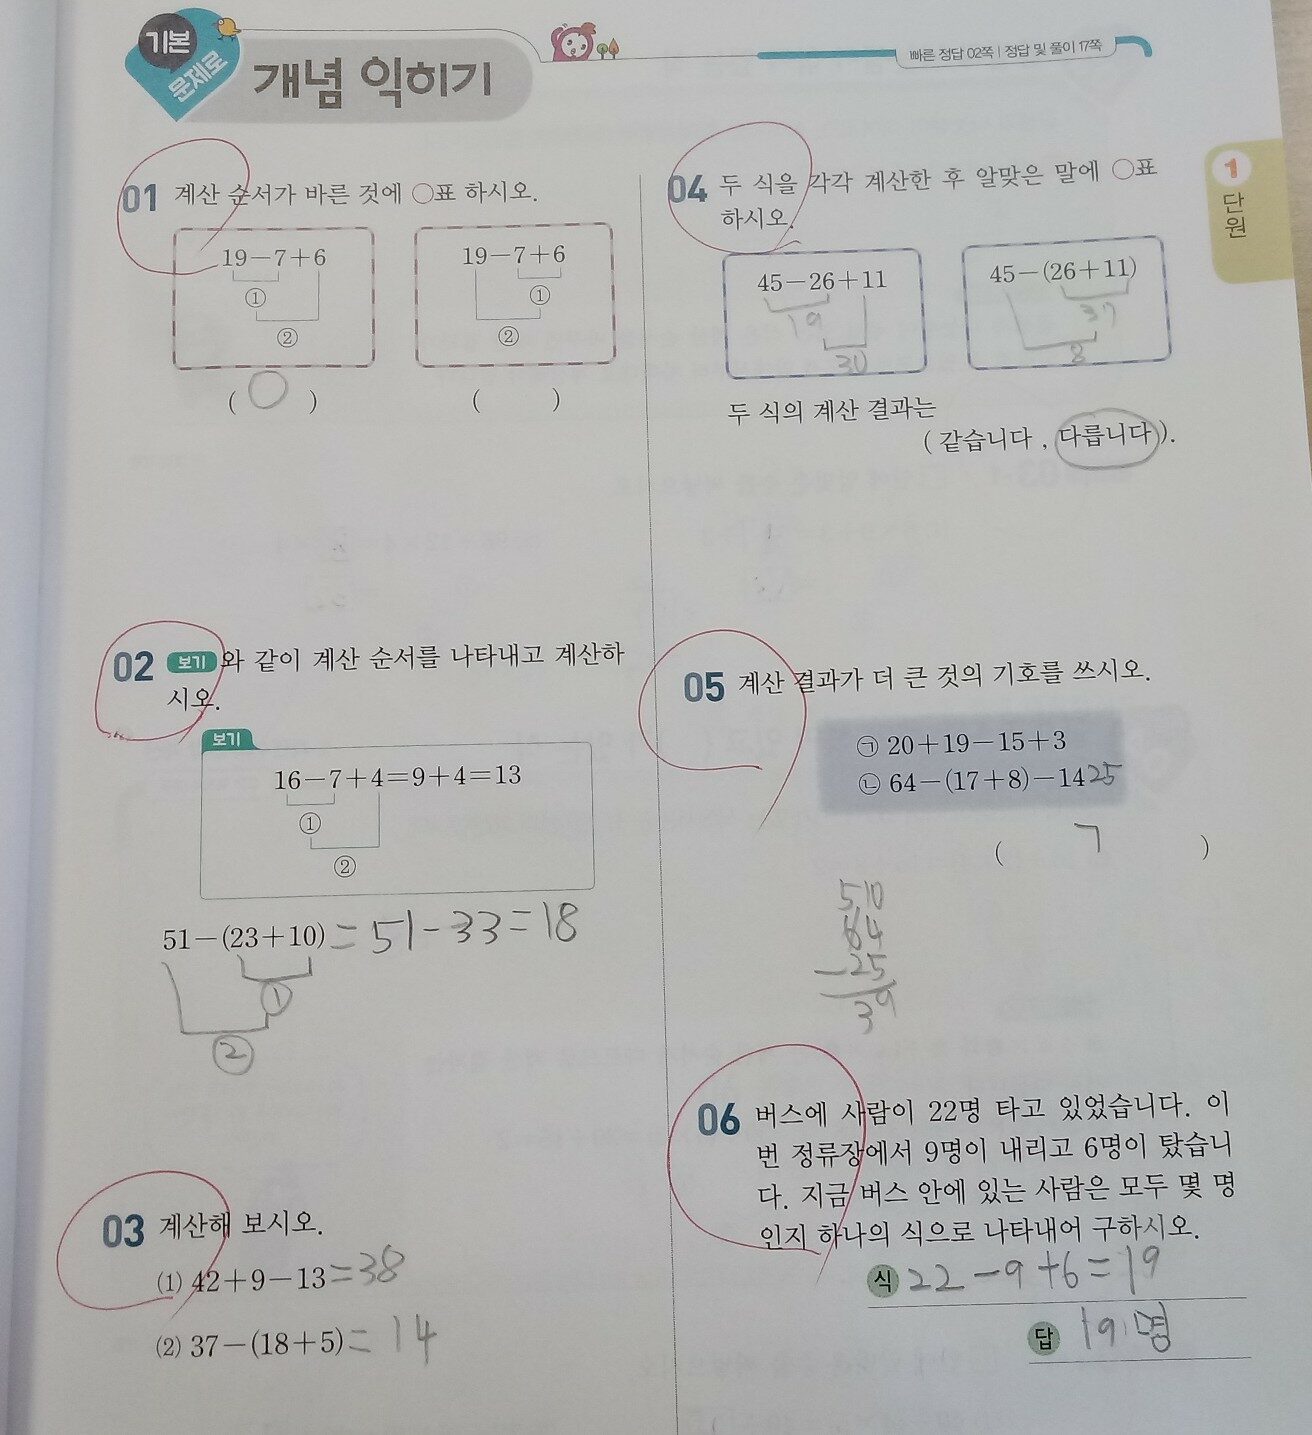 기본
문제로
개념 익히기
빠른 정답 02쪽 | 정답 및 풀이 17쪽
1
단원
01 계산 순서가 바른 것에 ○표 하시오.
19-7+6
①
②
( ○ )
19-7+6
①
②
( )
02 보기 와 같이 계산 순서를 나타내고 계산하
시오.
보기
16-7+4=9+4=13
①
②
51-(23+10)=51-33=18
①
②
03 계산해 보시오.
(1) 42+9-13=38
(2) 37-(18+5)=14
04 두 식을 각각 계산한 후 알맞은 말에 ○표
하시오.
45-26+11
19
30
45-(26+11)
37
8
두 식의 계산 결과는
( 같습니다 , 다릅니다 ).
05 계산 결과가 더 큰 것의 기호를 쓰시오.
㉠ 20+19-15+3
㉡ 64-(17+8)-14 25
( ㄱ )
5 10
64
-25
39
06 버스에 사람이 22명 타고 있었습니다. 이
번 정류장에서 9명이 내리고 6명이 탔습니
다. 지금 버스 안에 있는 사람은 모두 몇 명
인지 하나의 식으로 나타내어 구하시오.
식 22-9+6=19
답 19명